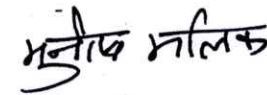 मुनीष मलिक